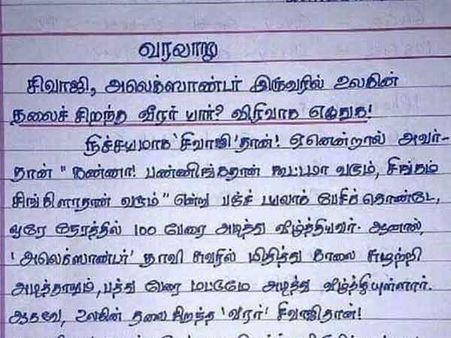 வரலாறு
சிவாஜி, அலெக்ஸாண்டர் இருவரில் உலகின்
தலைச் சிறந்த வீரர் யார்? விரிவாக எழுதுக!
நிச்சயமாக 'சிவாஜி' தான்! ஏனென்றால் அவர்-
தான் "கண்ணா! பன்னிங்கதான் கூட்டமா வரும், சிங்கம்
சிங்கிளாதான் வரும்" என்று பஞ்ச் டயலாக் பேசிக்கொண்டே,
ஒரே நேரத்தில் 100 பேரை அடித்து வீழ்த்தியவர். ஆனால்,
'அலெக்ஸாண்டர்' தாவி சுவரில் மிதித்து காலை சுழற்றி
அடித்தாலும், பத்து பேரை மட்டுமே அடித்து வீழ்த்தியுள்ளார்.
ஆகவே, உலகின் தலை சிறந்த 'வீரர்' சிவாஜிதான்!